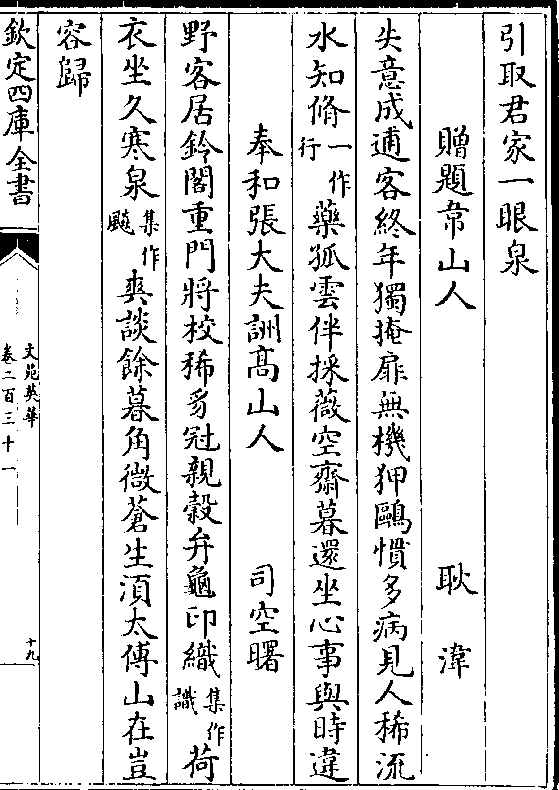 引取君家一眼泉
贈題韋山人　耿湋
失意成逋客終年獨掩扉無機狎鷗慣多病見人稀流
水知脩一作行藥孤雲伴採薇空齋暮還坐心事與時違
奉和張大夫詶髙山人　司空曙
野客居鈴閣重門將校稀豸冠親糓弁龜印織集作識荷
衣坐久寒泉集作飈爽談餘暮角微蒼生湏太傅山在豈
容歸
欽定四庫全書
文苑英華
卷二百三十一
十九